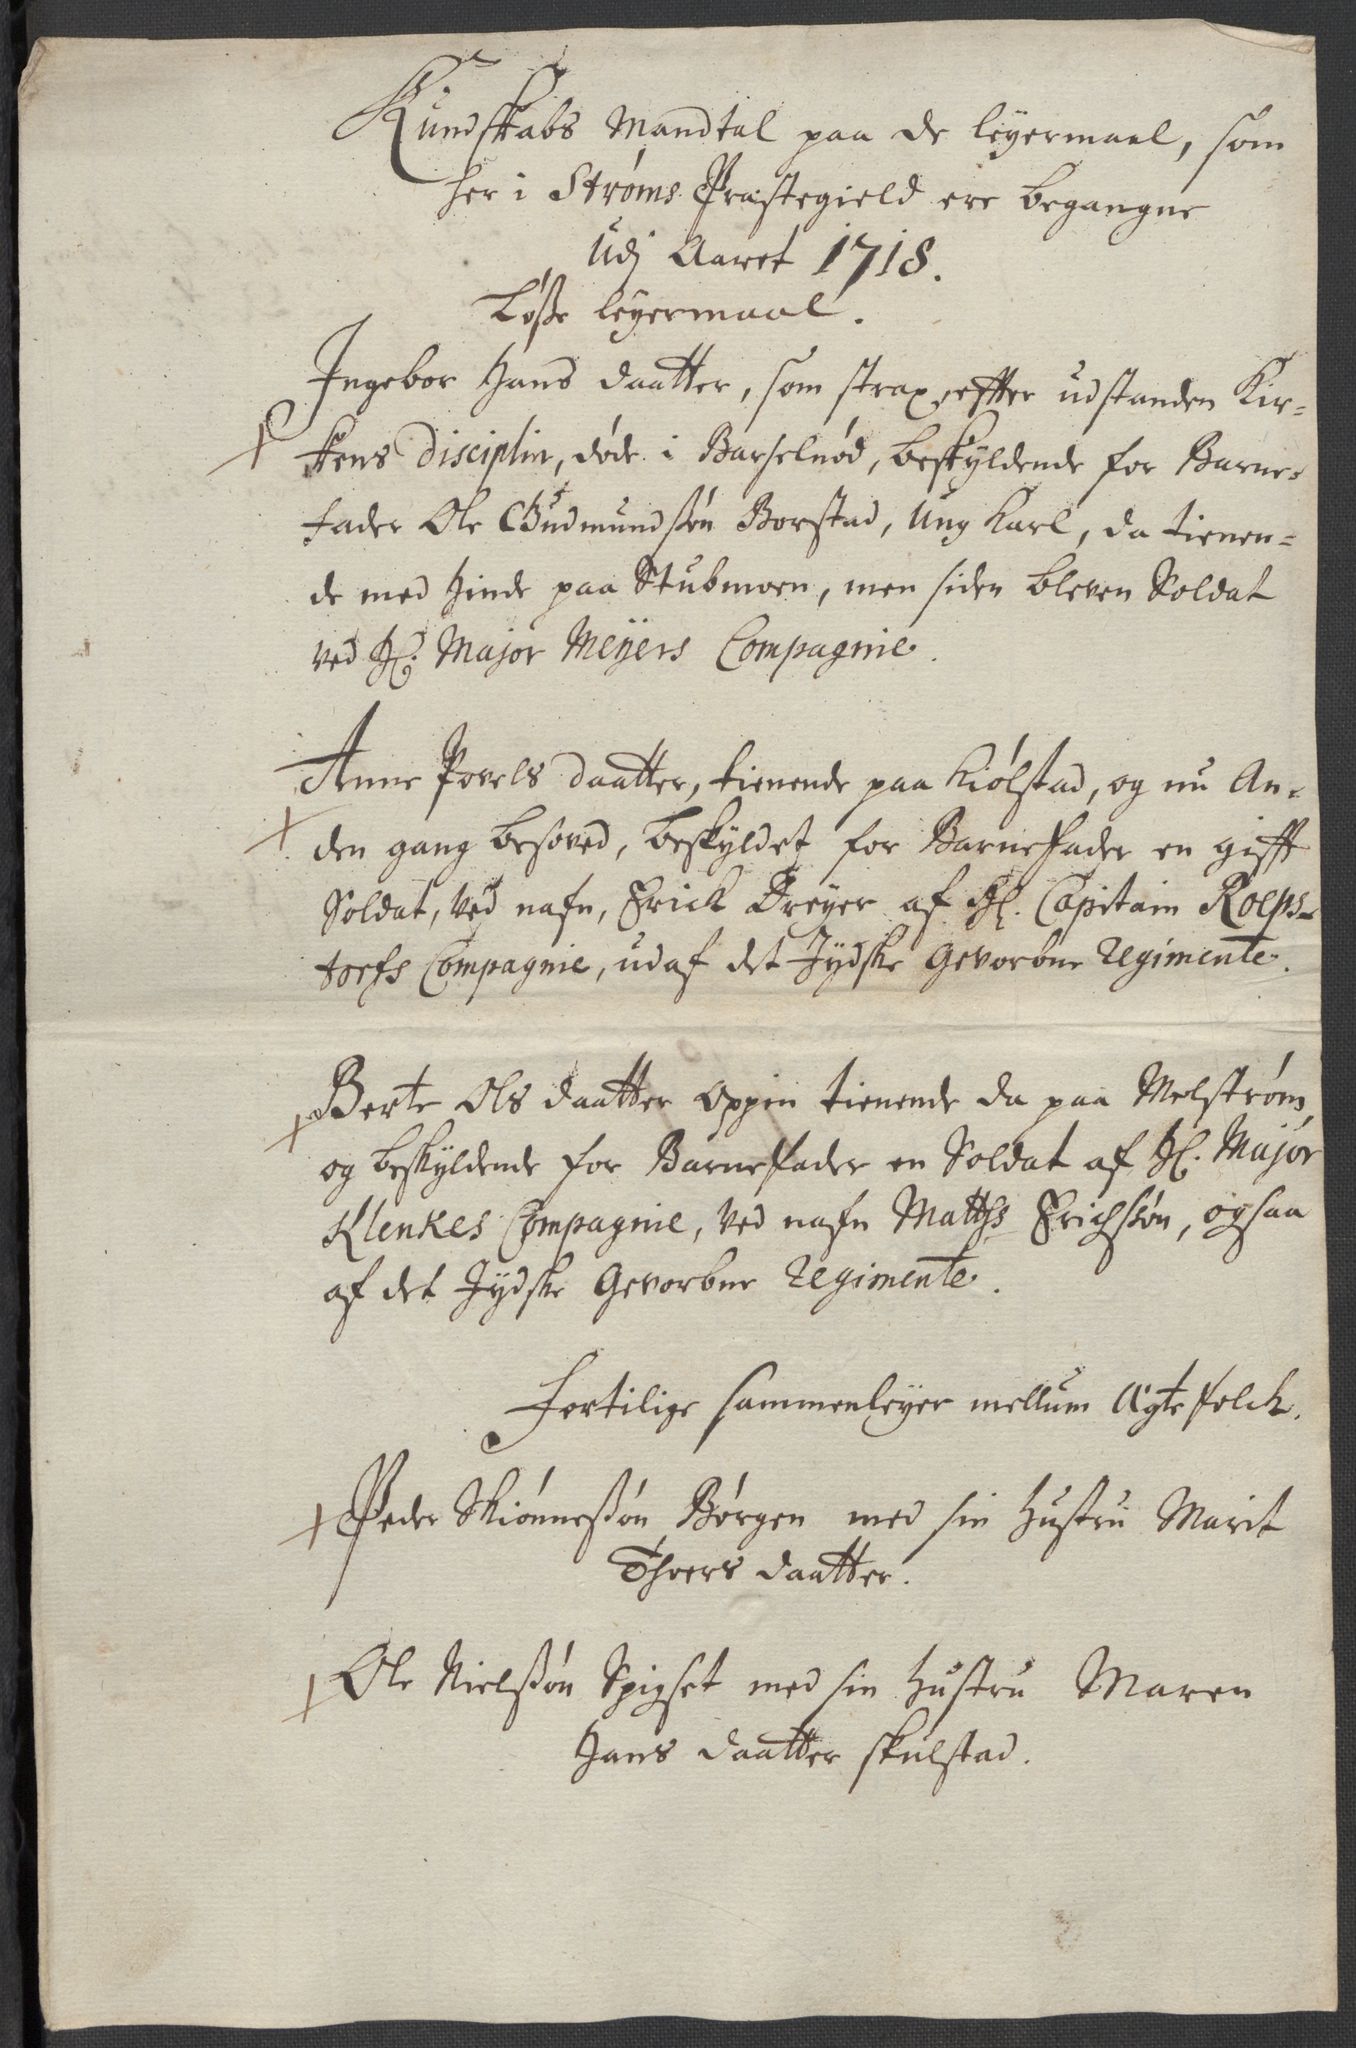 Kundskabs Mandtal paa de leyermaal, som
her i Strøms Præstegield ere begangne
Udj Aaret 1718.
Løsse leyermaal.
Ingebor Hans daatter, som strax effter udstanden Kir=
kens Disciplin, døde i Barselnød, beskyldende for Barne=
fader Ole Gudmundssøn Borstad, Ung Karl, da tienen=
de med hinde paa Stubmoen, men siden bleven Soldat
ved H. Major Meÿers Compagnie.
Anne Povels daatter, tienende paa Kiølstad, og nu An=
den gang besoved, beskyldet for Barnefader en gifft
Soldat, ved nafn, Erick Dreyer af H. Capitain Roeps=
torfs Compagnie, udaf det Jydske Gevorbne Regimente.
Berte Ols daatter Oppen tienende da paa Melstrøm,
og beskyldende for Barnefader en Soldat af H. Major
Klenkes Compagnie, ved nafn Matths Erichssøn, ogsaa
af det Jydske Gevorbne Regimente.
Førtilige sammenleyer mellum Ægtefolck.
Peder Skiønnessøn Børgen med sin Hustru Marit
Thores daatter.
Ole Nielssøn Spigset med sin Hustru Maren
Hans daatter Skulstad.